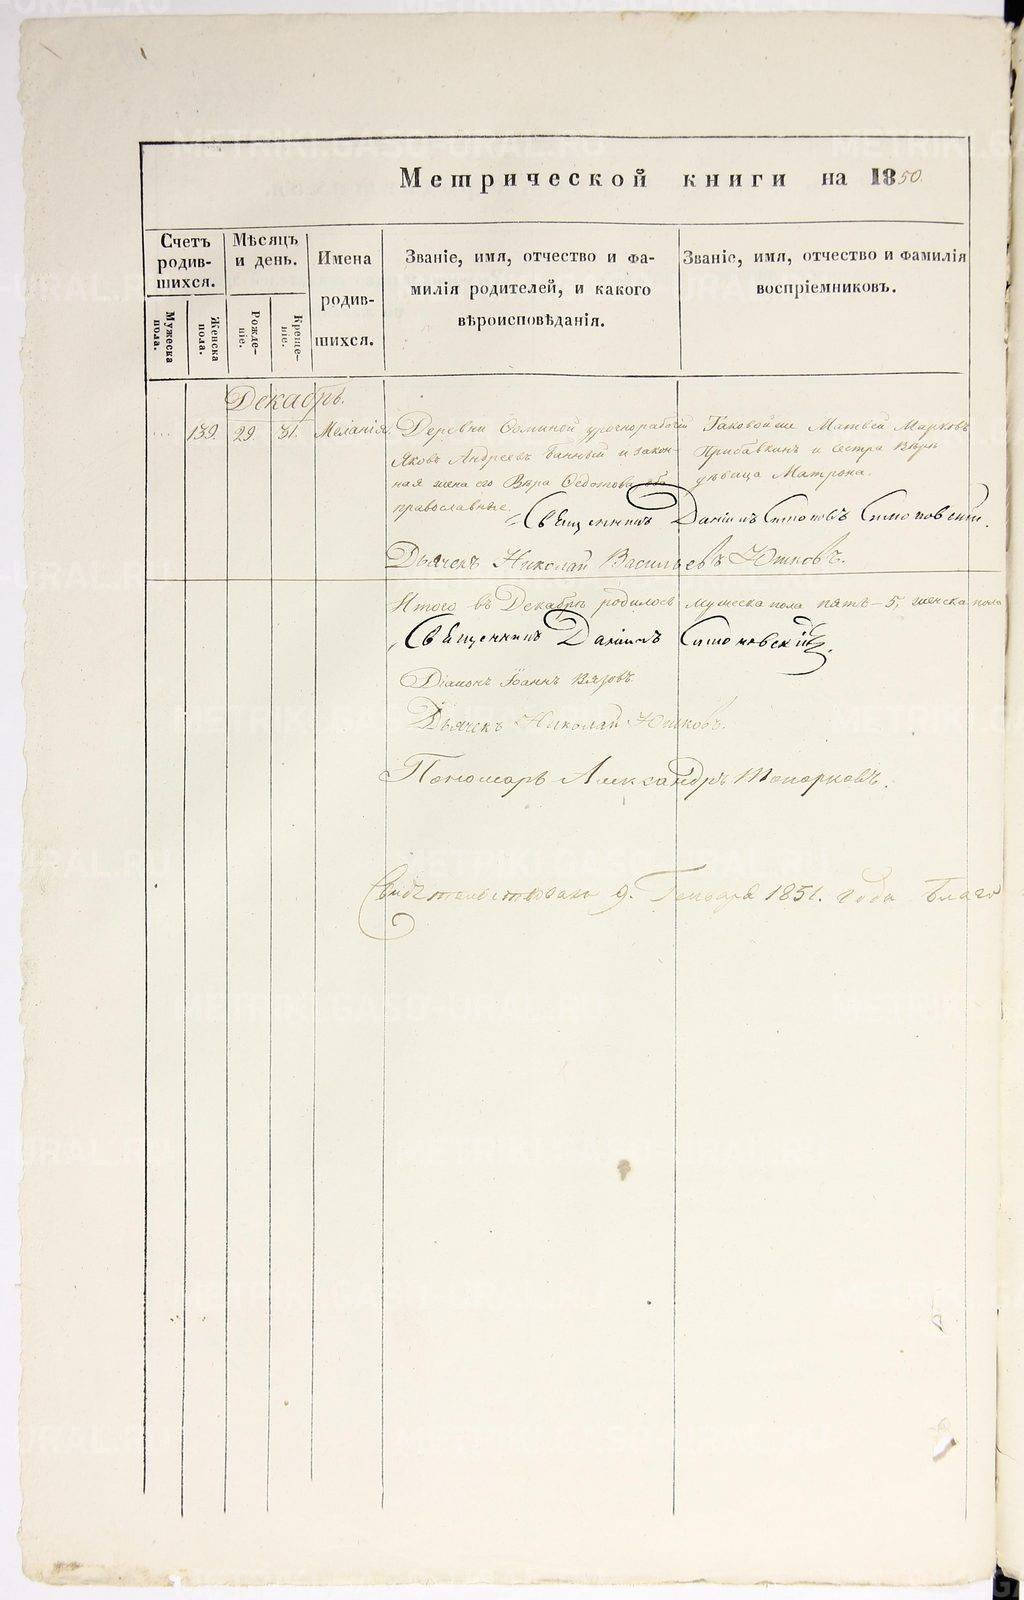 Метрической книги на 1850.
Счетъ родив-шихся.
Мѣсяцъ и день.
Имена родив-шихся.
Званіе, имя, отчество и фа-
милія родителей, и какого
вѣроисповѣданія.
Званіе, имя, отчество и фамилія
воспріемниковъ.
Мужеска пола.
Женска пола.
Рожде-ніе.
Креще-ніе.
Декабрь.
139. 29. 31. Меланія.
Деревни урочнорабочій
Яковъ Андреевъ и закон-
ная жена его Вѣра Федотова, оба
православные.
Таковой же Матвей Марковъ
Прибавкинъ и сестра
дѣвица Матрона.
Священникъ Даніилъ Симоновскій.
Дьячекъ Николай Васильевъ Юшковъ.
Итого въ Декабрѣ родилось мужеска пола пять – 5, женска пола
Священникъ Даніилъ Симоновскій.
Діаконъ Іоаннъ
Дьячекъ Николай Юшковъ.
Пономарь Александръ Топорковъ.
Свидѣтельствовалъ 9. Генваря 1851. года Благо
METRIKI.GASO-URAL.RU